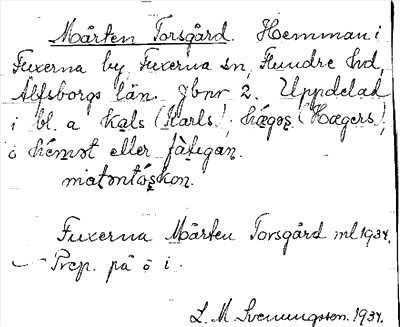 Mårten Torsgård. Hemman i
Fuxerna by, Fuxerna sn, Flundre hd,
Älfsborgs län. Jbnr 2. Uppdelad
i bl. a kals (Karls), (Hægers),
å hémət eller
matəntóskon.
Fuxerna Mårten Torsgård ml 1934.
— Prep. på ö i.
L. M. Svenungsson. 1934.